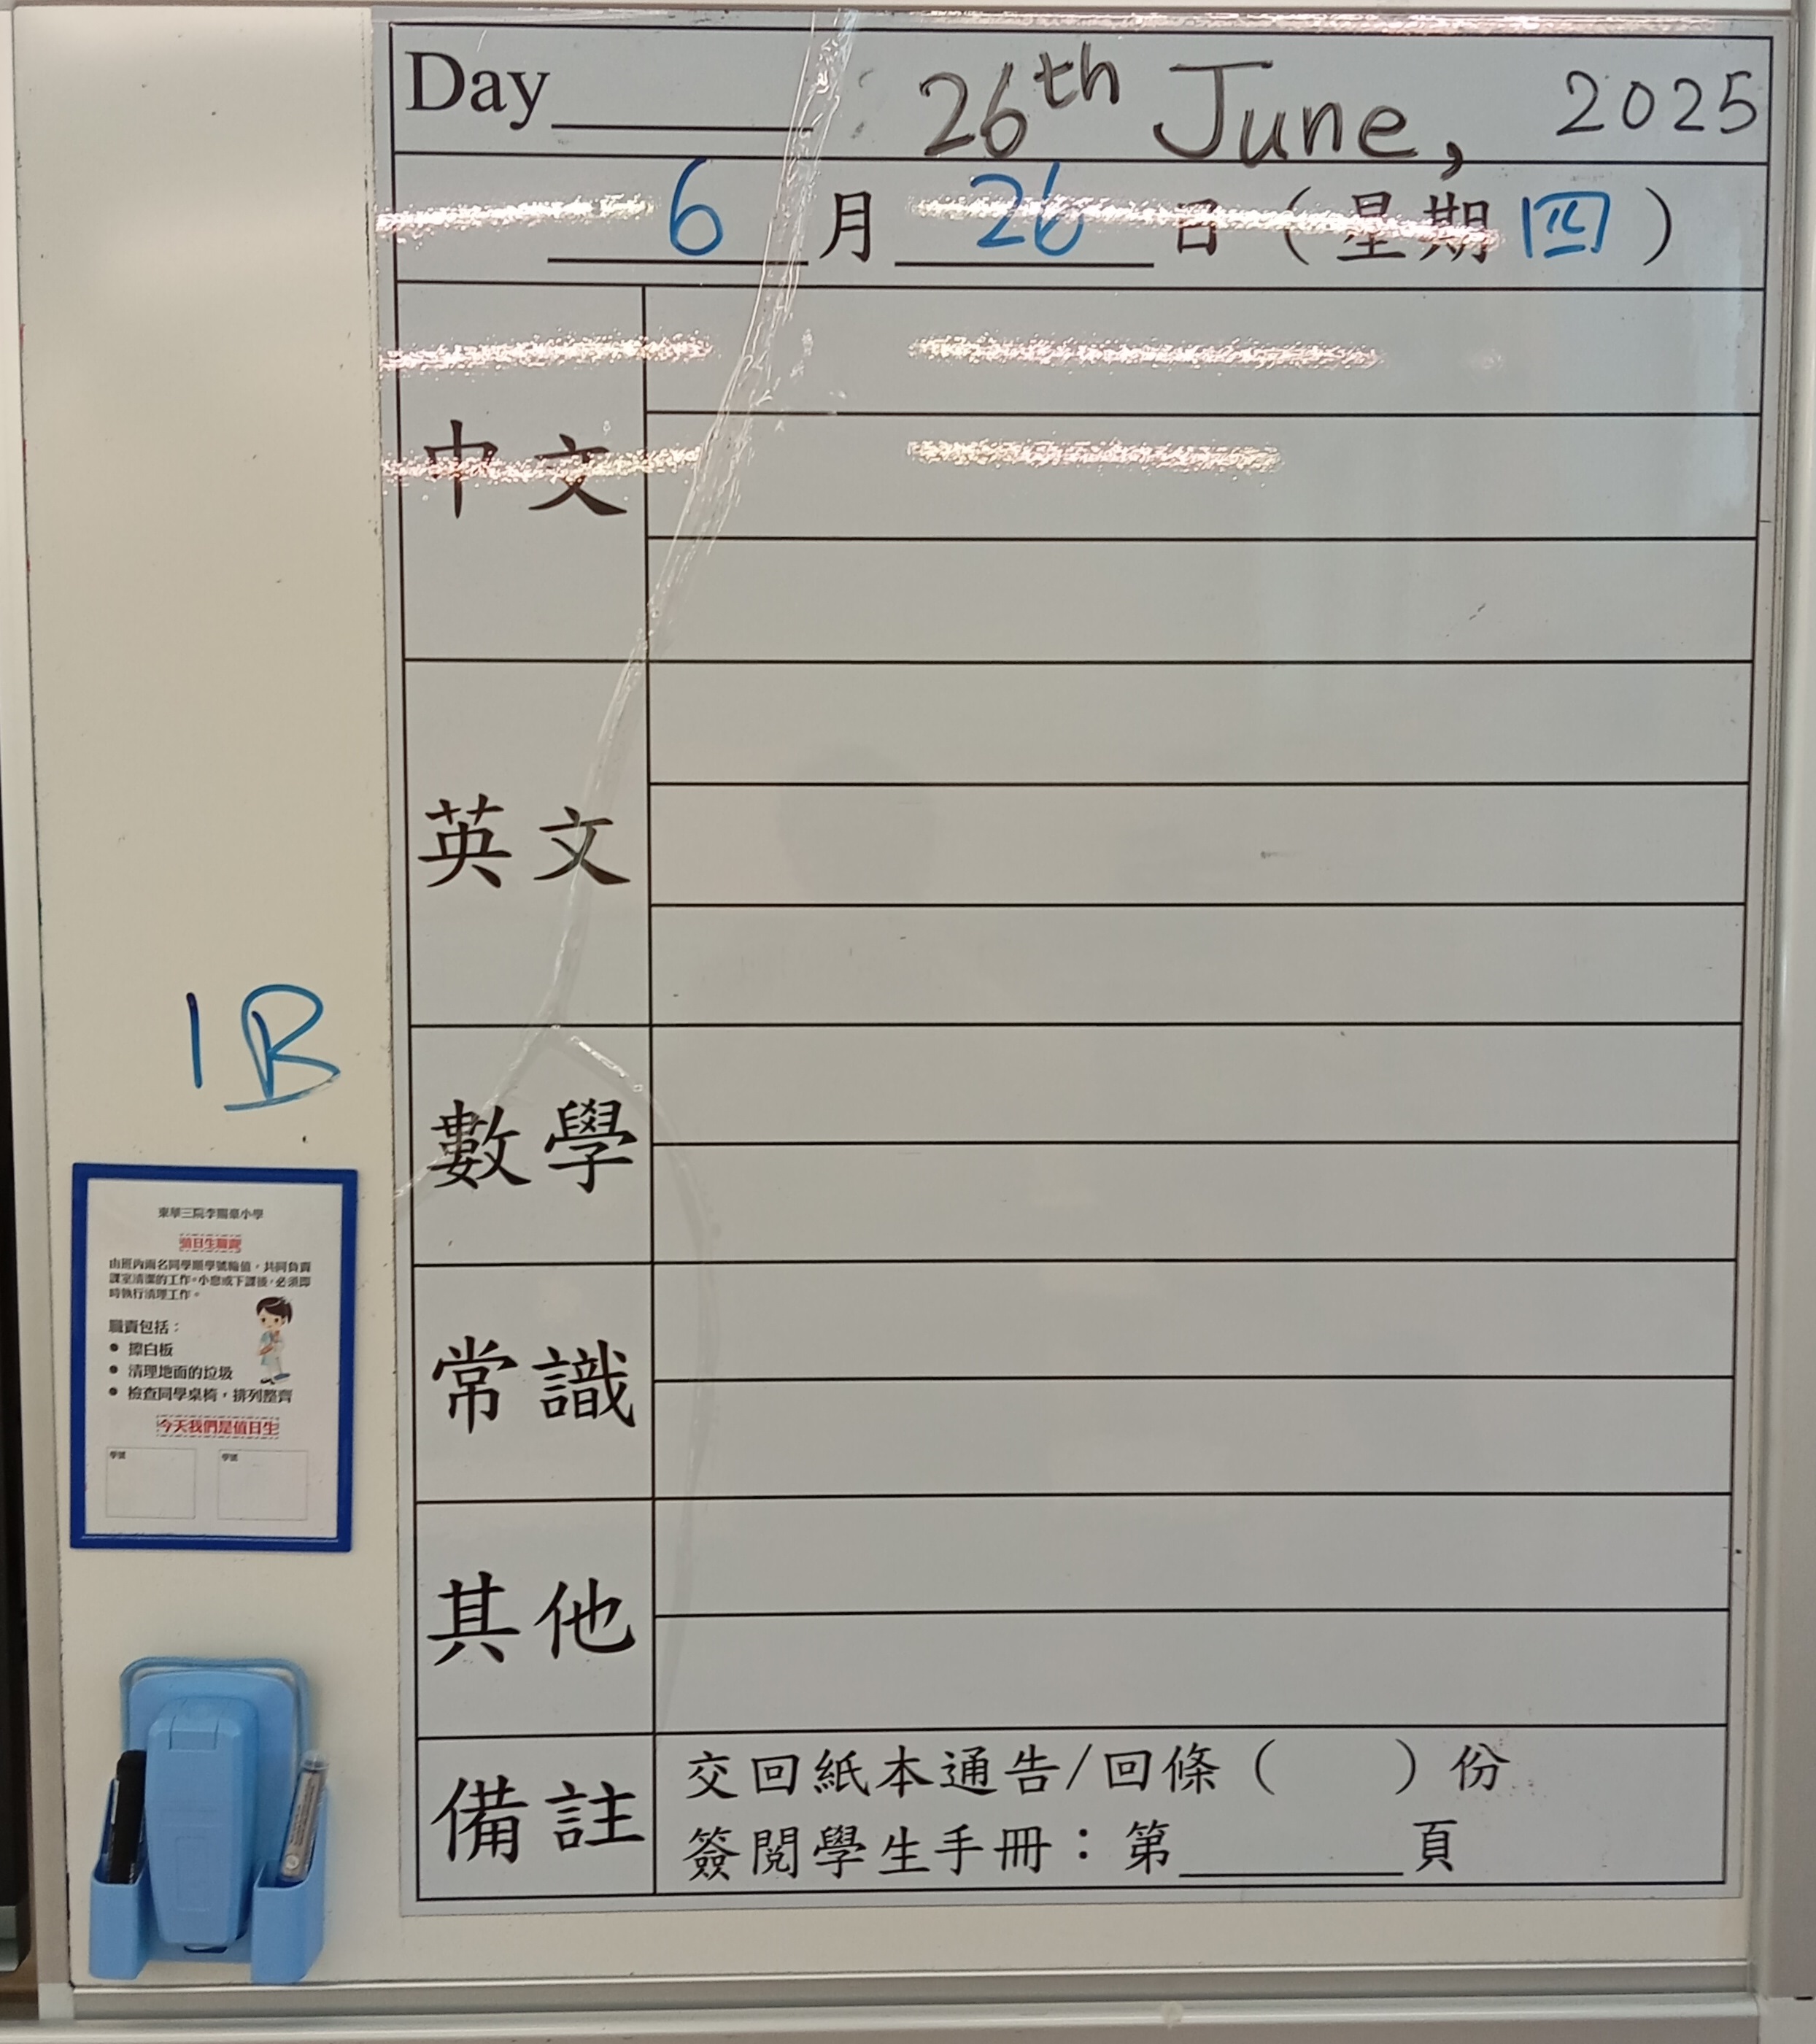 Day 26th June, 2025
6月26日(星期四)
中文
英文
數學
常識
其他
備註
交回紙本通告/回條( )份
簽閱學生手冊:第 頁
1B
東華三院李賜豪小學
值日生職責
由班內兩名同學順學號輪值,共同負責
課室清潔的工作。小息或下課後,必須即
時執行清理工作。
職責包括:
● 擦白板
● 清理地面的垃圾
● 檢查同學桌椅,排列整齊
今天我們是值日生
學號 學號